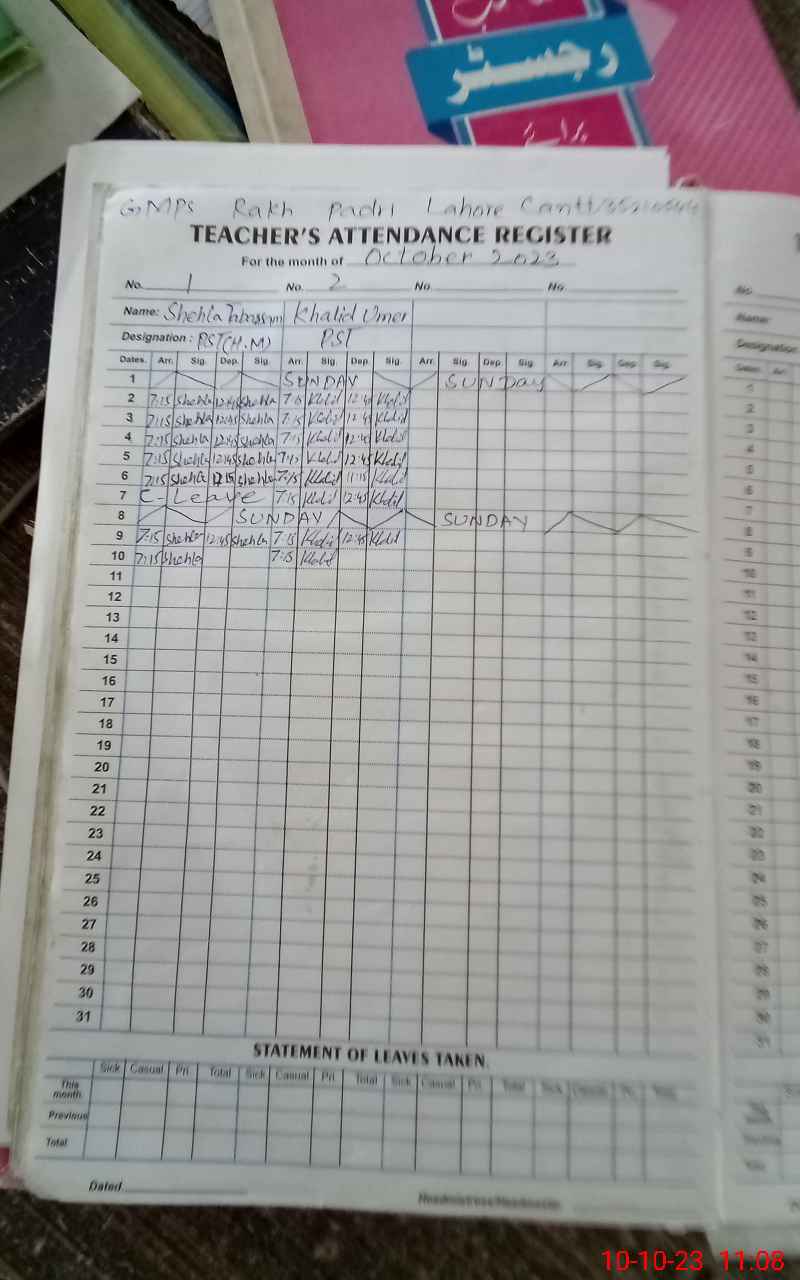 رجسٹر
برائے
GMPS Rakh Padri Lahore Cantt
TEACHER'S ATTENDANCE REGISTER
For the month of October 2023
No. 1 No. 2 No. No.
Name: Shehla Tabassam Khalid Umer
Designation: PST(H.M) PST
Dates. Arr. Sig. Dep. Sig. Arr. Sig. Dep. Sig. Arr. Sig. Dep. Sig. Arr. Sig. Dep. Sig.
1 SUNDAY SUNDAY
2 7:15 Shehla 12:45 Shehla 7:15 Khalid 12:45 Khalid
3 7:15 Shehla 12:45 Shehla 7:15 Khalid 12:45 Khalid
4 7:15 Shehla 12:45 Shehla 7:15 Khalid 12:45 Khalid
5 7:15 Shehla 12:45 Shehla 7:15 Khalid 12:45 Khalid
6 7:15 Shehla Shehla 7:15 Khalid 11:15 Khalid
7 C-Leave 7:15 Khalid 12:45 Khalid
8 SUNDAY SUNDAY
9 7:15 Shehla 12:45 Shehla 7:15 Khalid 12:45 Khalid
10 7:15 Shehla 7:15 Khalid
11
12
13
14
15
16
17
18
19
20
21
22
23
24
25
26
27
28
29
30
31
STATEMENT OF LEAVES TAKEN.
Sick Casual Pri. Total Sick Casual Pri. Total Sick Casual Pri. Total Sick Casual Pri. Total
This month
Previous
Total
Dated
Headmistress/Headmaster
10-10-23 11:08